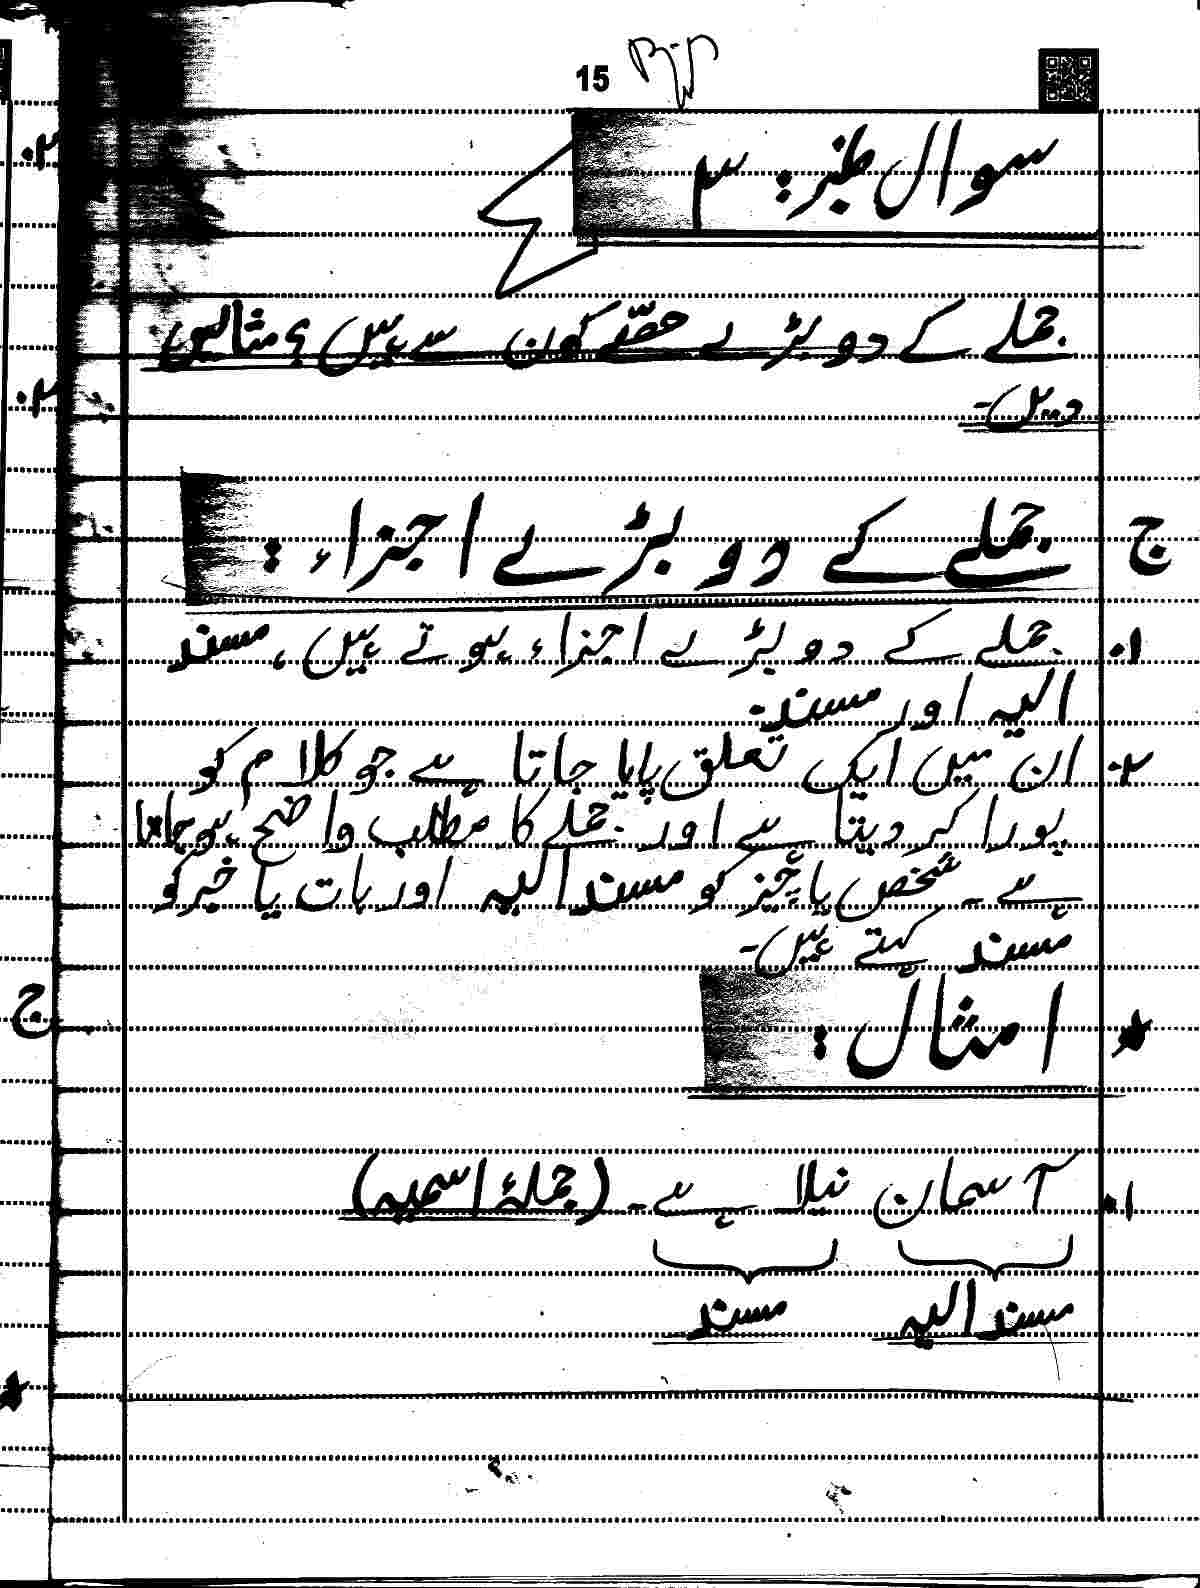 15
سوال نمبر: ۳
جملے کے دو بڑے حصّے کون سے ہیں؟ مثالیں
دیں۔
ج جملے کے دو بڑے اجزاء:
۱. جملے کے دو بڑے اجزاء ہوتے ہیں، مسند
الیہ اور مسند.
۲. ان میں ایک تعلق پایا جاتا ہے جو کلام کو
پورا کر دیتا ہے اور جملے کا مطلب واضح ہو جاتا
ہے۔ شخص یا چیز کو مسند الیہ اور بات یا خبر کو
مسند کہتے ہیں۔
★ امثال:
۱. آسمان نیلا ہے۔ (جملۂ اسمیہ)
مسند الیہ مسند
۲.
۲.
ج
★